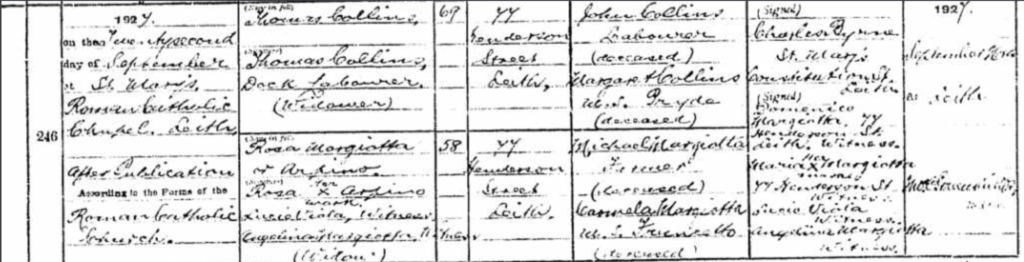 246
1927.
on the Twentysecond
day of September
at St. Mary's
Roman Catholic
Chapel, Leith,
After Publication
According to the Forms of the
Roman Catholic
Church.
(Signed)
Thomas Collins,
Thomas Collins,
Dock Labourer
(Widower)
Rosa Margiotta
or Arpino
(Signed)
Rosa her X mark Arpino
Lucia Viola, Witness
Angelina Margiotta, Witness
(Widow)
69
58
77
Henderson
Street
Leith.
77
Henderson
Street
Leith.
John Collins
Labourer
(deceased)
Margaret Collins
M.S. Pryde
(deceased)
Michael Margiotta
Farmer
(deceased)
Carmela Margiotta
M.S.
(deceased)
(Signed)
Charles Byrne
St. Mary's
Constitution St.
Leith
(Signed)
Domenico
Margiotta, 77
Henderson St.
Leith. Witness.
Maria her X mark Margiotta
77 Henderson St.
Witness.
Lucia Viola
Witness.
Angelina Margiotta
Witness.
1927.
September
at Leith